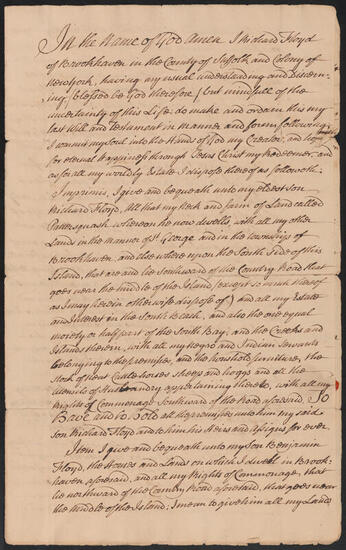 In the Name of God Amen I Richard Floyd
of Brookhaven in the County of Suffolk and Colony of
New York, having my usual understanding and Discern-
ing, (blessed be God therefore) but mindfull of the
uncertainty of this Life: do make and ordain this my
last Will and Testament in manner and form following.
I commit my Soul into the Hands of God my Creator, and hope
for eternal happiness through Jesus Christ my Redeemer, and
as for all my worldly Estate I dispose thereof as followeth.
Imprimis, I give and bequeath unto my eldest son
Richard Floyd, All that my Neck and farm of Land called
Pattersquash whereon he now dwells, with all my other
Land in the Mannor of St. George and in the township of
Brookhaven, and else where upon the South Side of this
Island, that are and lie Southward of the Country Road that
goes near the middle of the Island (except so much thereof
as I may herein otherwise dispose of) and all my Estate
and Interest in the South Beach, and also the one equal
moiety or half part of the South Bay; and the Creeks and
Islands therein, with all my Negro and Indian Servants
belonging to the premises, and the household furniture, the
Stock of neat Cattle horses sheep and hoggs and all the
Utensils of Husbandry appertaining thereto, with all my
Rights of Commonage Southward of the Road aforesaid, To
Have and to Hold all the premises unto him my said
son Richard Floyd and to him his Heirs and assigns for ever.
Item I give and bequeath unto my Son Benjamin
Floyd, the Houses and Land on which I dwell in Brook-
haven aforesaid, and all my Rights of Commonage, that
lie northward of the Country Road aforesaid, that goes near
the middle of the Island: I mean to give him all my Lands